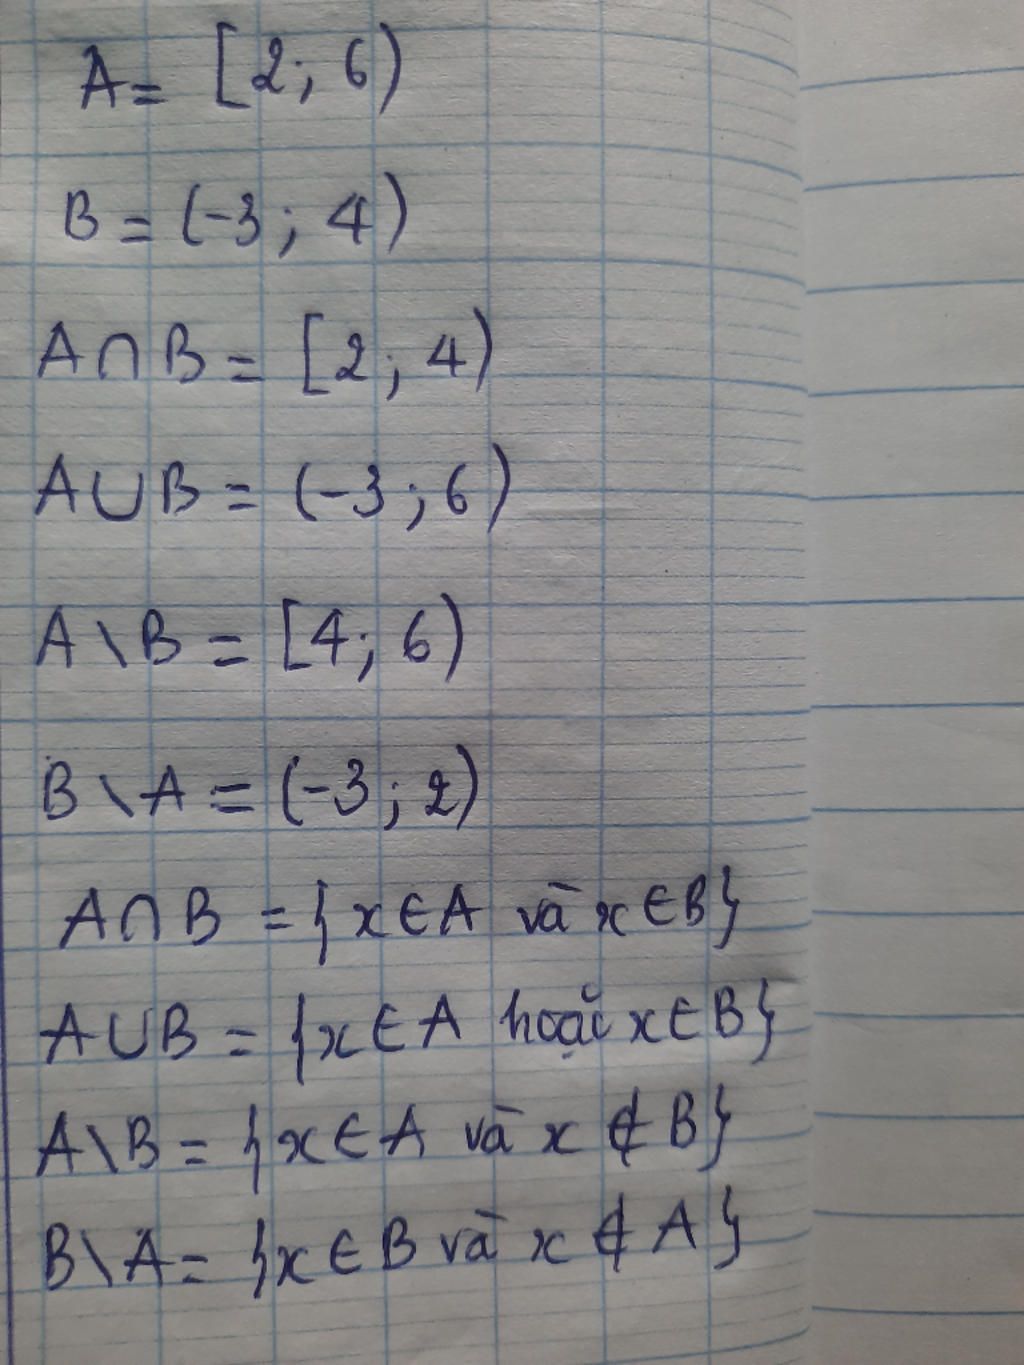 A = [2; 6)
B = (-3; 4)
A∩B = [2; 4)
A∪B = (-3; 6)
A\B = [4; 6)
B\A = (-3; 2)
A∩B = {x∈A và x∈B}
A∪B = {x∈A hoặc x∈B}
A\B = {x∈A và x∉B}
B\A = {x∈B và x∉A}